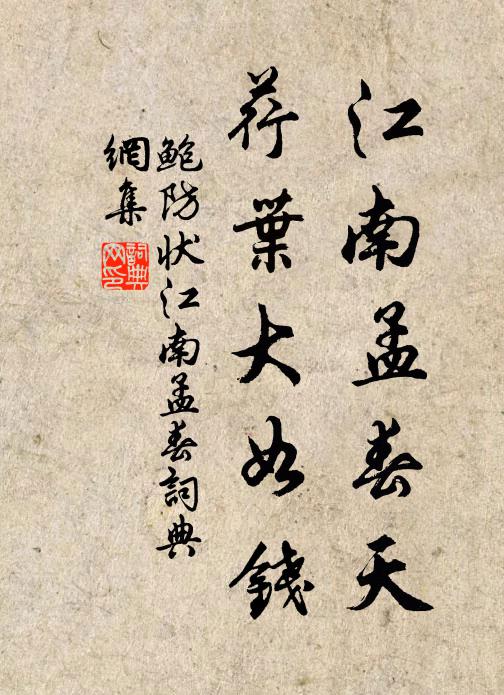 江南孟春天
荇葉大如錢
鲍防状江南孟春詞典
網集
詞典
网印